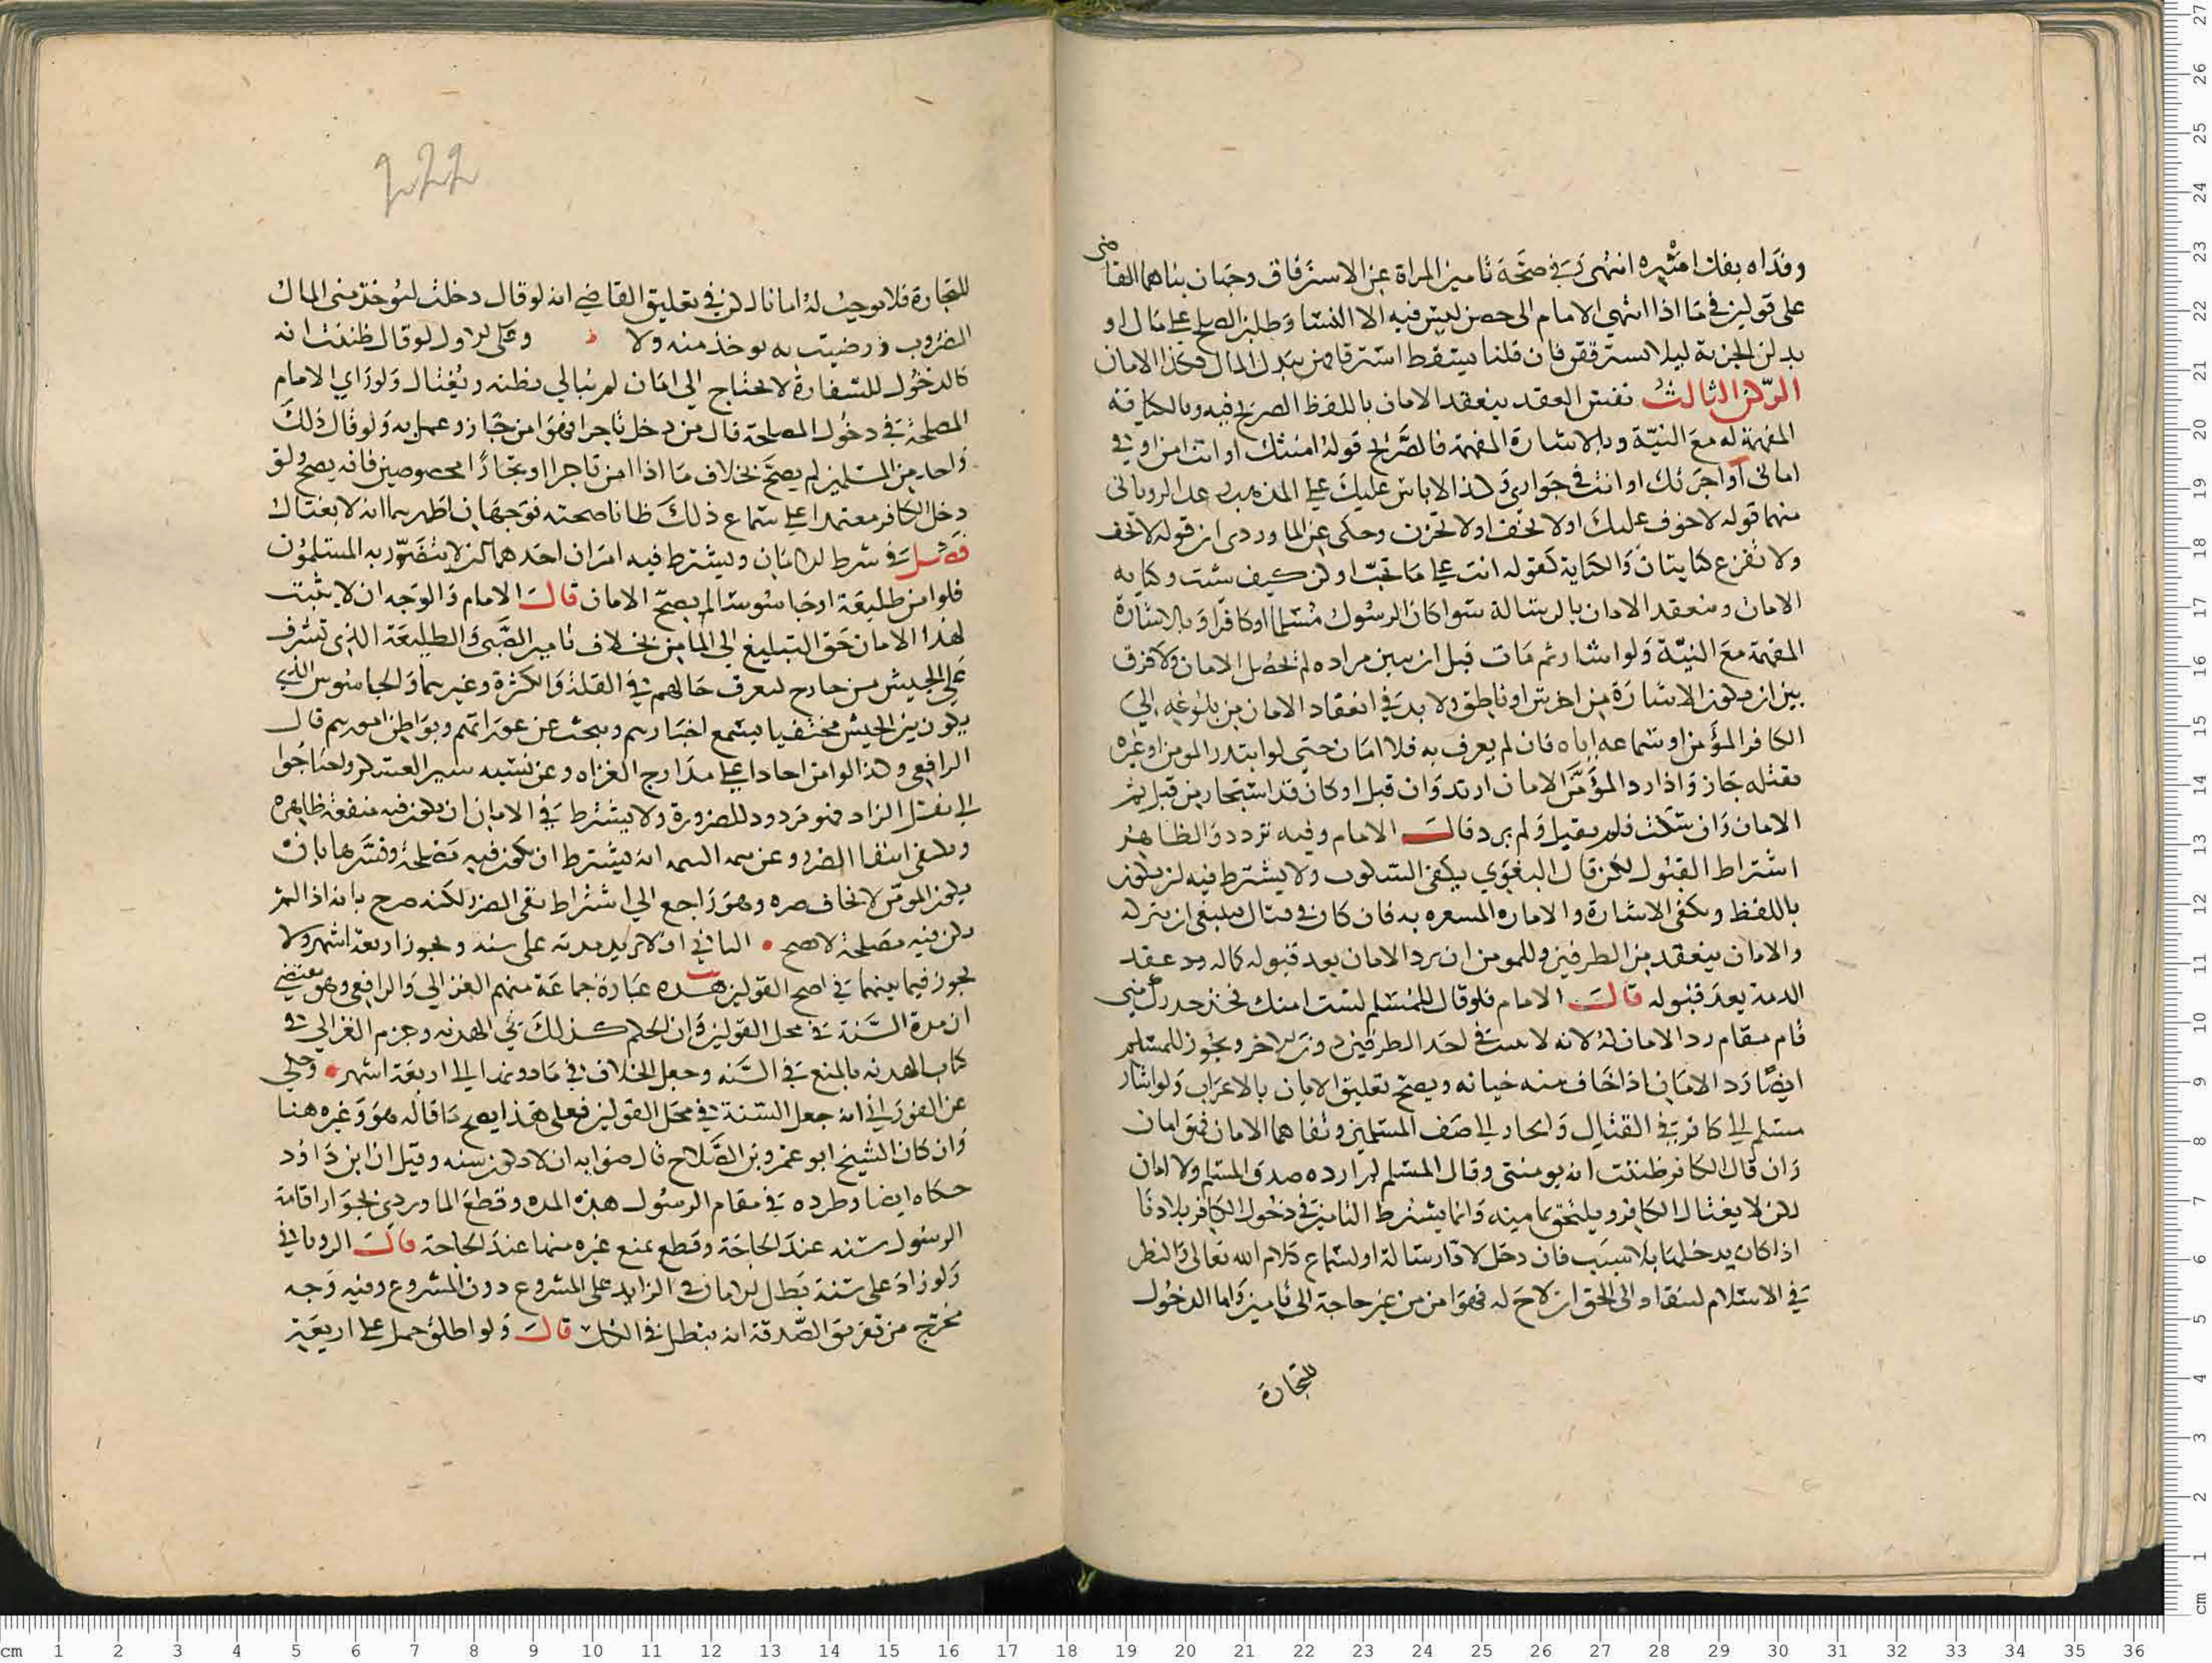 وفداه بفك اسيره انتهى وفي صحة تامين المراة عن الاسترقاق وجهان بناهما القاضي
على قولين في ما اذا انتهى الامام الى حصن ليس فيه الا النسا وطلبن الصلح على مال او
بدلن الجزية ليلا يسترققن فان قلنا يسقط استرقاقهن ببدل المال فكذا الامان
الركن الثالث نفس العقد ينعقد الامان باللفظ الصريح فيه وبالكناية
المفهمة له مع النية وبالاشارة المفهمة فالصريح قوله امنتك او انت امن او في
اماني او اجرتك او انت في جواري وكذا لاباس عليك على المذهب وعد الروياني
منهما قوله لاخوف عليك او لا تخف او لا تحزن وحكى عن الماوردي ان قوله لا تخف
ولا تفزع كنايتان والكناية كقوله انت على ما تحب او كن كيف شئت وكنايه
الامان وينعقد الامان بالرسالة سوا كان الرسول مسلما او كافرا وبالاشارة
المفهمة مع النية ولو اشار ثم مات قبل ان يبين مراده لم يحصل الامان ولا فرق
بين ان تكون الاشارة من اخرس او ناطق ولا بد في انعقاد الامان من بلوغه الي
الكافر المؤمن او سماعه اياه فان لم يعرف به فلا امان حتى لو ابتدر المومن او غيره
بقتله جاز واذا رد المؤمن الامان ارتد وان قبل او كان قد استجار من قبل تم
الامان وان سكت فلم يقبل ولم يرد قال الامام وفيه تردد والظاهر
اشتراط القبول لكن قال البغوي يكفي السكوت ولا يشترط فيه ان يكون
باللفظ ويكفي الاشارة والاماره المشعره به فان كان في قتال فينبغي ان يتركه
والامان ينعقد من الطرفين وللمومن ان يرد الامان بعد قبوله كماله رد عقد
الدمة بعد قبوله قال الامام فلو قال للمسلم لست امنك فخذ حذرك مني
قام مقام رد الامان له لانه لا يثبت في احد الطرفين دون الاخر ويجوز للمسلم
ايضا رد الامان اذا خاف منه خيانه ويصح تعليق الامان بالاعراب ولو اشار
مسلم الى كافر في القتال وانحاز الى صف المسلمين وتفاهما الامان فهو امان
وان قال الكافر ظننت انه يومنني وقال المسلم لم ارده صدق المسلم ولا امان
لكن لا يغتال الكافر ويلتحق بمامنه وانما يشترط التامين في دخول الكافر بلادنا
اذا كان يدخلها بلا سبب فان دخل لادا رسالة او لسماع كلام الله تعالى والنظر
في الاسلام لينقاد الى الحق ان لاح له فهو امن من غير حاجة الى تامين واما الدخول
للتجارة
222
للتجارة فلا يوجب له امانا لكن في تعليق القاضي انه لو قال دخلت ليوخذ مني المال
المضروب ورضيت به يوخذ منه ولا وعلى الاول لو قال ظننت انه
كالدخول للسفارة لا يحتاج الى امان لم نبالي بظنه ويغتال ولو راي الامام
المصلحة في دخول المصلحة فقال من دخل تاجرا فهو امن جاز وعمل به ولو قال ذلك
واحد من المسلمين لم يصح بخلاف ما اذا امن تاجرا او تجارا مخصوصين فانه يصح ولو
دخل الكافر معتمدا على سماع ذلك ظانا صحته فوجهان اظهرهما انه لا يغتال
فصل في شرط الامان ويشترط فيه امران احدهما ان لا يتضرر به المسلمون
فلو امن طليعة او جاسوسا لم يصح الامان قال الامام والوجه ان لا يثبت
لهذا الامان حق التبليغ الى المامن بخلاف تامين الصبي والطليعة الذي تشرف
على الجيش من خارج ليعرف حالهم في القلة والكثرة وغيرهما والجاسوس الذي
يكون بين الجيش مختفيا يتسمع اخبارهم ويبحث عن عوراتهم وبواطن امورهم قال
الرافعي وكذا لو امن احادا على مدارج الغزاه وعن بسببه سير العسكر واحتاجوا
الى نقل الزاد فهو مردود للضرورة ولا يشترط في الامان ان يكون فيه منفعة ظاهره
ويكفي انتفا الضرر وعن انه يشترط ان يكون فيه مصلحة وفسرها بان
يكون المومن لا يخاف ضره وهو راجع الى اشتراط نفي الضرر لكنه صرح بانه اذا لم
يكن فيه مصلحة لا يصح • الثاني ان لا تزيد مدته على سنه ويجوز اربعة اشهر ولا
يجوز فيما بينهما في اصح القولين هذه عبارة جماعة منهم الغزالي والرافعي وهو يقتضي
ان مدة السنة في محل القولين وان الحكم كذلك في الهدنه وجزم الغزالي في
كتاب الهدنه بالمنع في السنه وجعل الخلاف في ما دونها الى اربعة اشهر • وحكي
عن الفوراني انه جعل السنة في محل القولين فعلى هذا يصح ما قاله هو وغيره هنا
وان كان الشيخ ابو عمرو بن الصلاح قال صوابه ان لا يكون سنه وقيل ان ابن داود
حكاه ايضا وطرده في مقام الرسول هذه المده وقطع الماوردي بجواز اقامة
الرسول سنه عند الحاجة وقطع بمنع غيره منها عند الحاجة قال الروياني
ولو زاد على سنة بطل الامان في الزايد على المشروع دون المشروع وفيه وجه
مخرج من تفريق الصفقة انه يبطل في الكل قال ولو اطلق حمل على اربعة